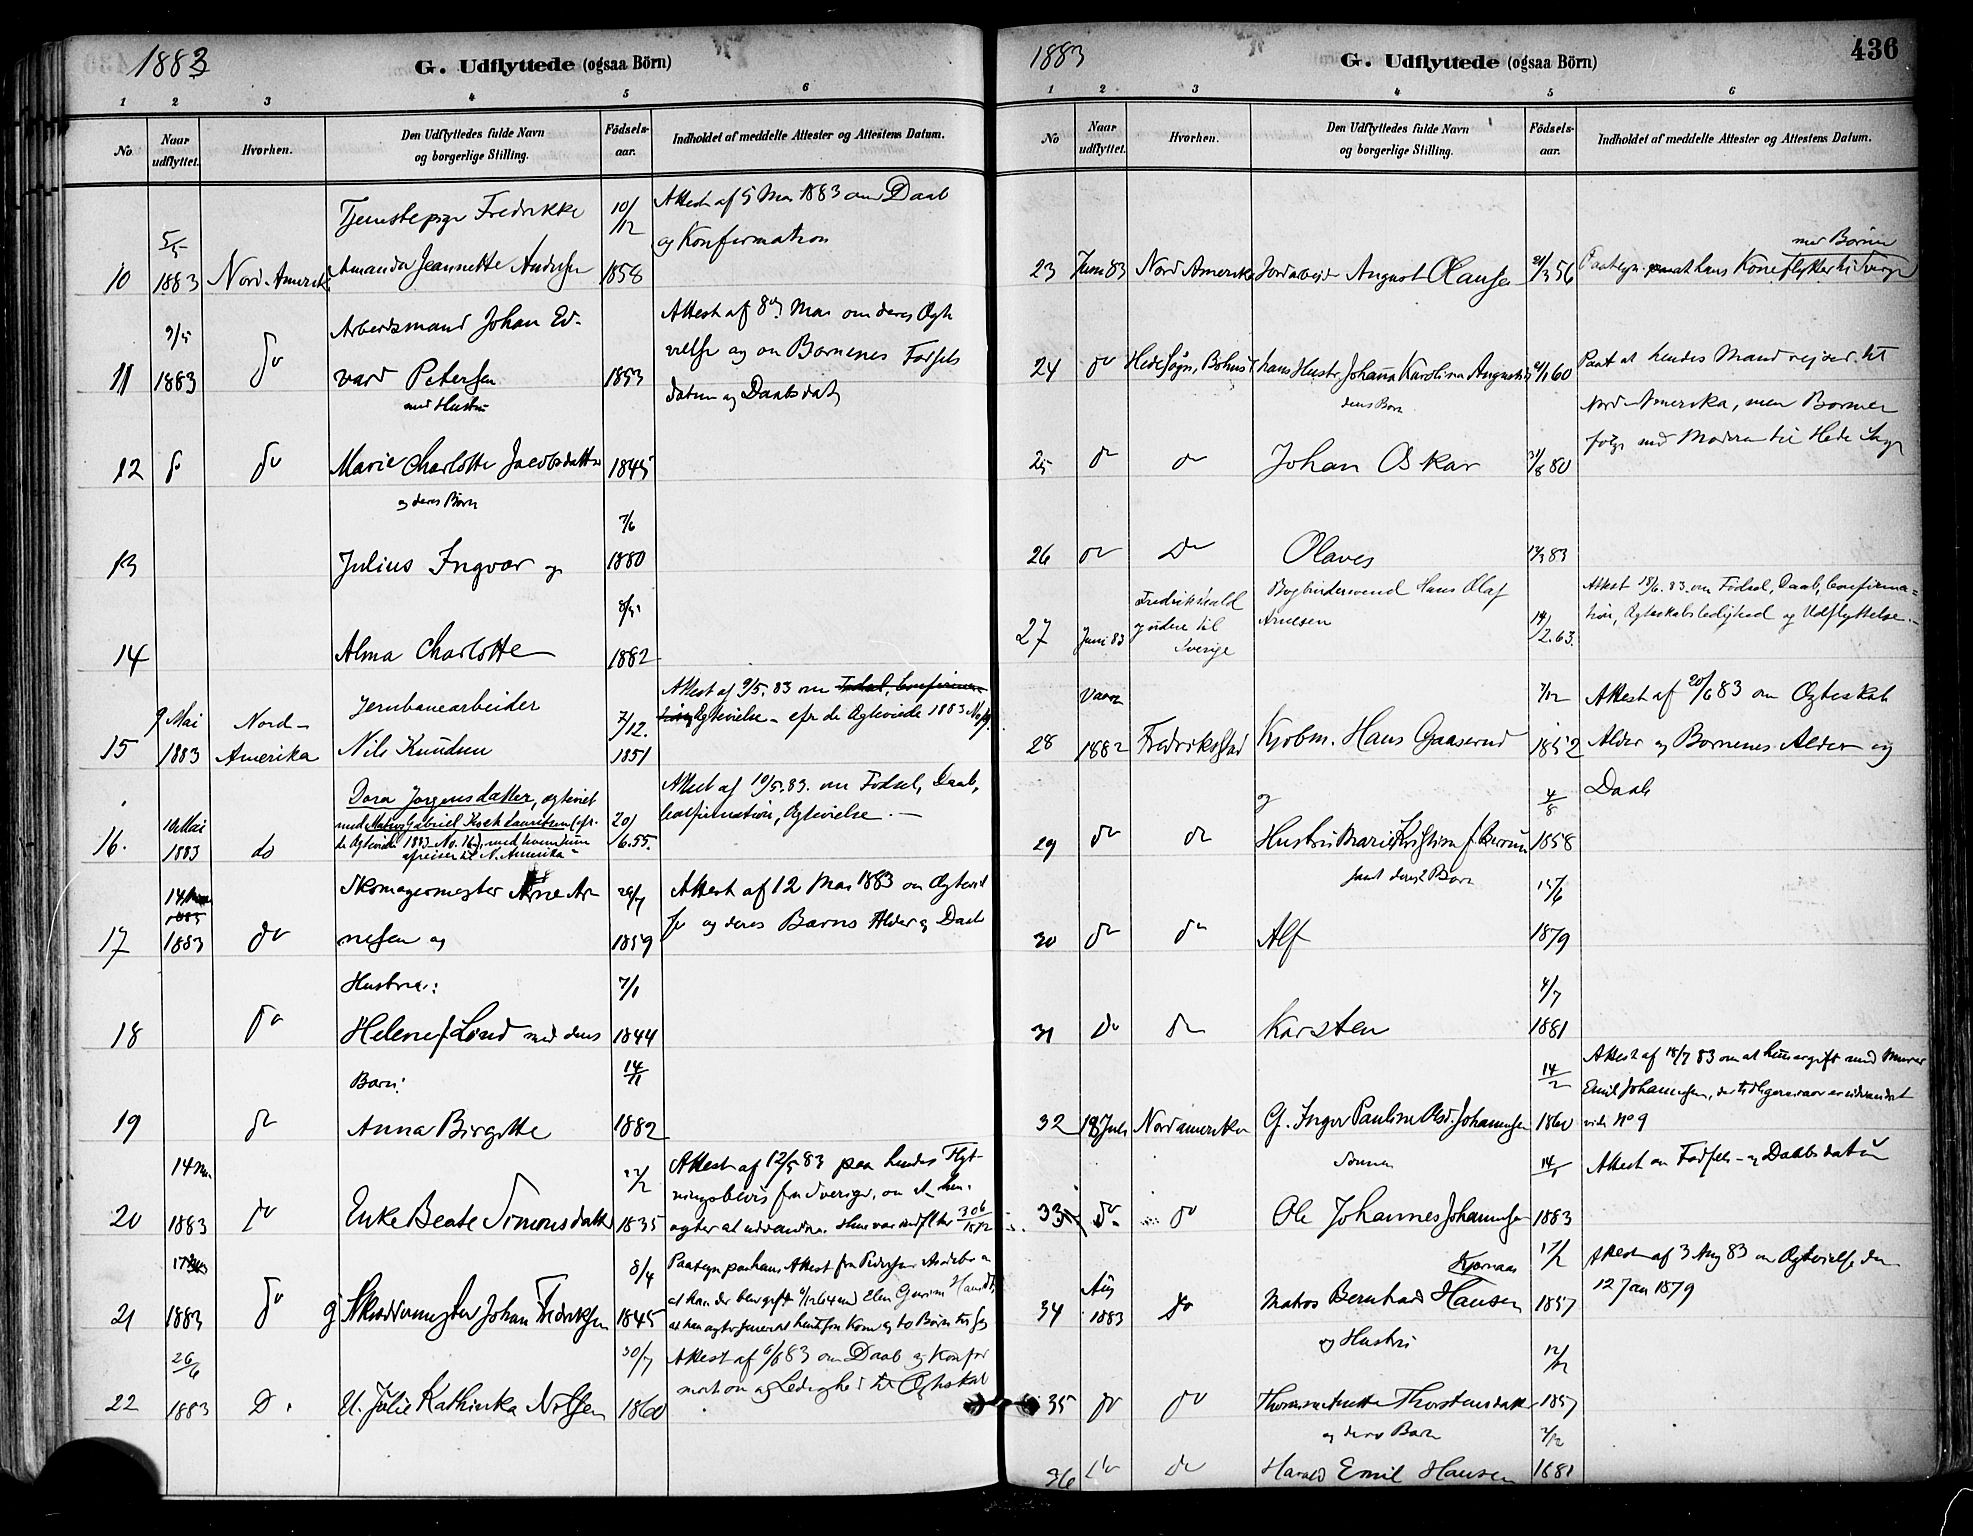 1883
G. Udflyttede (ogsaa Börn)
1 2 3 4 5 6
No
Naar udflyttet.
Hvorhen.
Den Udflyttedes fulde Navn og borgerlige Stilling.
Födsels-aar.
Indholdet af meddelte Attester og Attestens Datum.
10 5/5 1883 Nord-Amerika
Tjenestepige Fredrikke
Amanda Jeannette Andersen
10/12 1858
Attest af 5 Mai 1883 om Daab
og Konfirmation
11 9/5 1883 do
Arbeidsmand Johan Ed-
vard Petersen
med Hustru
1853
Attest af 8de Mai om deres Ægte
vielse og om Børnenes Fødsels
datum og Daabsdat
12 do do
Marie Charlotte Jacobsdatter
og deres Børn
1845
13
Julius Ingvar og
7/6 1880
14
Alma Charlotte
1882
15 9 Mai 1883 Nord-Amerika
Jernbanearbeider
Nils Knudsen
7/12. 1851
Attest af 9/5. 83 om Fødsel, Confirma-
tion, Ægtevielse - efr de Ægteviede 1883
16. 10 Mai 1883 do
Dora Jørgensdatter, ægteviet
med Gabriel Koch Lauritsen (efr.
de Ægteviede 1883 No. 16), med hvem hun
afreiser til N. Amerika
20/6.55.
Attest af 10/5.83. om Fødsel, Daab,
Confirmation, Ægtevielse. —
17 14 1883 do
Skomagermester Arne Ar-
nesen og
29/7 1859
Attest af 12 Mai 1883 om Ægteviel
se og deres Barns Alder og Daab
18 do
Hustru:
Helene f. Lund med deres
Barn:
7/1 1844
19 do
Anna Birgitte
14/11 1882
20 14 Mai 1883 do
Enke Beate Simonsdatter
1835
Attest af 12/5 83 paa hendes Flyt-
ningsbevis fra Sverige, om at hen.
agter at udvandre. Hun var indflyttet 306/1872
21 17 1883 do
Skræddermester Johan Fredriksen
8/4 1845
Paategn paa hans Attest fra
at han der blev gift
at han agter senere at hente sin Kone og to Børn
22 26/6 1883 Do
U. Julie Kathinka Nilsen
30/7 1860
Attest af 6/6 83 om Daab og Konfir
mation og Ledighed til Ægteskab
1883
G. Udflyttede (ogsaa Börn)
436
1 2 3 4 5 6
No
Naar udflyttet.
Hvorhen.
Den Udflyttedes fulde Navn og borgerlige Stilling.
Födsels-aar.
Indholdet af meddelte Attester og Attestens Datum.
23 Juni 83 Nord Amerika
Jordarbeider August Olausen
21/3 56
med Børnene
Paategn. paa at hans Kone flytter til Sverige
24 do Hede Sogn, Bohus
hans Hustr. Johanna Karolina
deres Børn
60
Paat at hendes Mand rejser til
Nord-Amerika, men Børnene
følge med Moderen til Hede Sogn
25 do do
Johan Oskar
31/8 80
26 do Do
Olaves
83
27 Juni 83
Fredrikshald
og videre til
Sverige
Bogbindersvend Hans Olaf
Arnesen
14/2.63.
Attest 18/6. 83. om Fødsel, Daab, Confirma=
tion, Ægteskabsledighed og Udflyttelse. -
28 Vaaren 1882 Fredrikstad
Kjøbm. Hans Gaaserud
og
7/12 1852
Attest af 20/6 83 om Ægteskab
Alder og Børnenes Alder og
Daab
29 do do
Hustru Marie Kristine f.
samt deres 2 Børn
4/8 1858
30 do do
Alf
15/6 1879
31 Do do
Karsten
4/7 1881
32 18 Juli Nordamerika
G. Inger Pauline Olsd. Johannesen
Sønnen
14/2 1860
Attest af 18/7 83 om at hun er gift med Murer
Emil Johannesen, der tidligere i aar er udvandret
vide No 9
33 do do
Ole Johannes Johannesen
1883
Attest om Fødsels- og Daabsdatum
34 Aug 1883 do
Kjørnaas
Matros Bernhard Hansen
og Hustru
17/2 1857
Attest af 3 Aug 83 om Ægtevielse den
12 Jan 1879
35 do do
Anette Thorstensdatter
og deres Barn
12/12 1857
36 do do
Harald Emil Hansen
1881